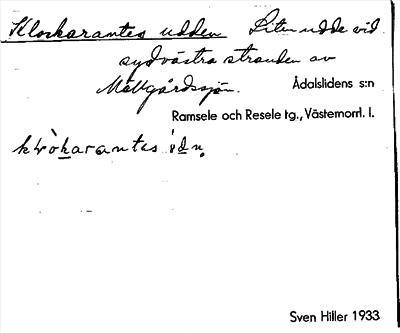 Klockarantes udden Liten udde vid
sydvästra stranden av
Mållgårdssjön. Ådalslidens s:n
Ramsele och Resele tg., Västernorrl. l.
Sven Hiller 1933